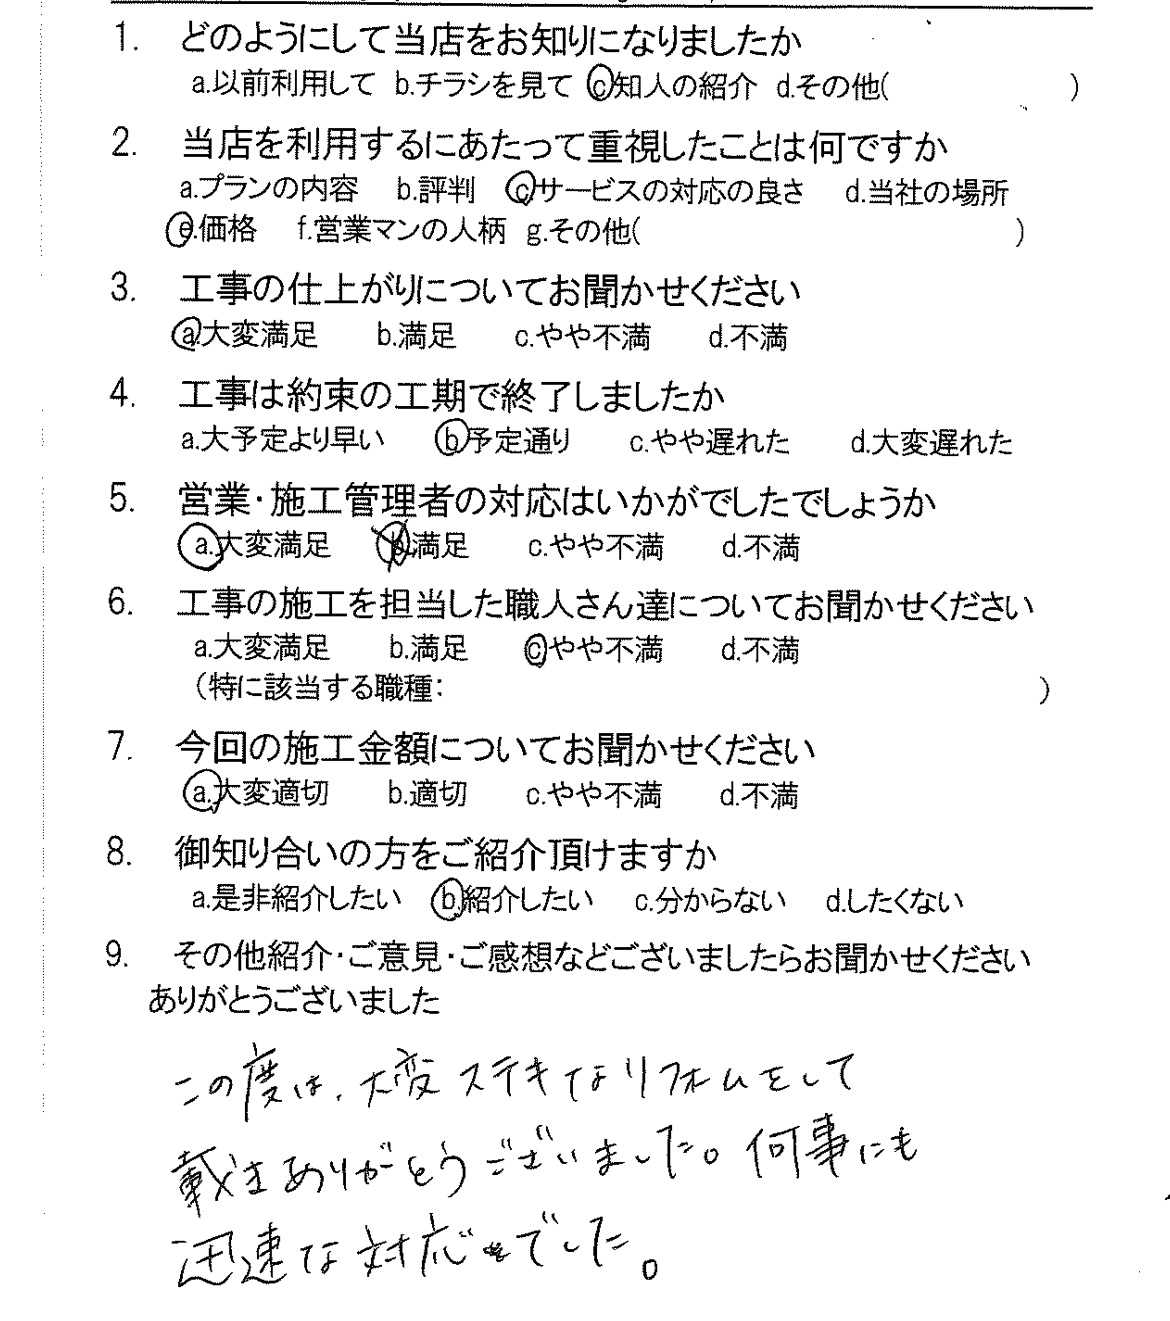 1. どのようにして当店をお知りになりましたか
a.以前利用して b.チラシを見て c知人の紹介 d.その他( )
2. 当店を利用するにあたって重視したことは何ですか
a.プランの内容 b.評判 c.サービスの対応の良さ d.当社の場所
e.価格 f.営業マンの人柄 g.その他( )
3. 工事の仕上がりについてお聞かせください
a.大変満足 b.満足 c.やや不満 d.不満
4. 工事は約束の工期で終了しましたか
a.大予定より早い b予定通り c.やや遅れた d.大変遅れた
5. 営業・施工管理者の対応はいかがでしたでしょうか
a.大変満足 b.満足 c.やや不満 d.不満
6. 工事の施工を担当した職人さん達についてお聞かせください
a.大変満足 b.満足 c.やや不満 d.不満
(特に該当する職種: )
7. 今回の施工金額についてお聞かせください
a.大変適切 b.適切 c.やや不満 d.不満
8. 御知り合いの方をご紹介頂けますか
a.是非紹介したい b.紹介したい c.分からない d.したくない
9. その他紹介・ご意見・ご感想などございましたらお聞かせください
ありがとうございました
この度は、大変ステキなリフォムをして
載きありがとうございました。何事にも
迅速な対応でした。